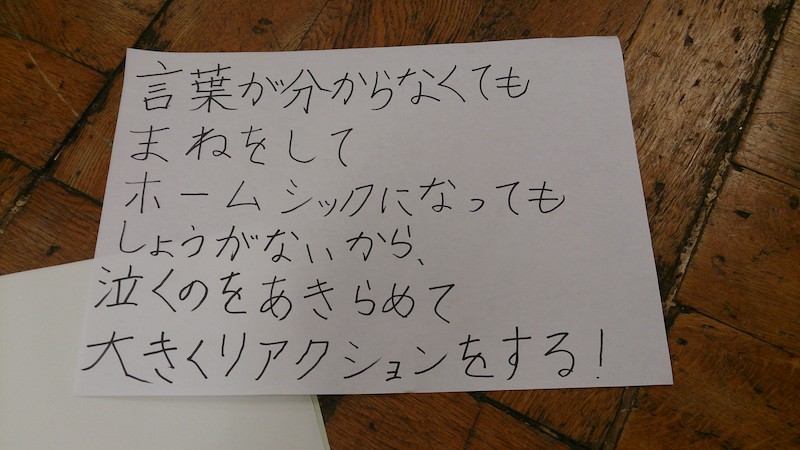 言葉が分からなくても
まねをして
ホームシックになっても
しょうがないから、
泣くのをあきらめて
大きくリアクションをする!